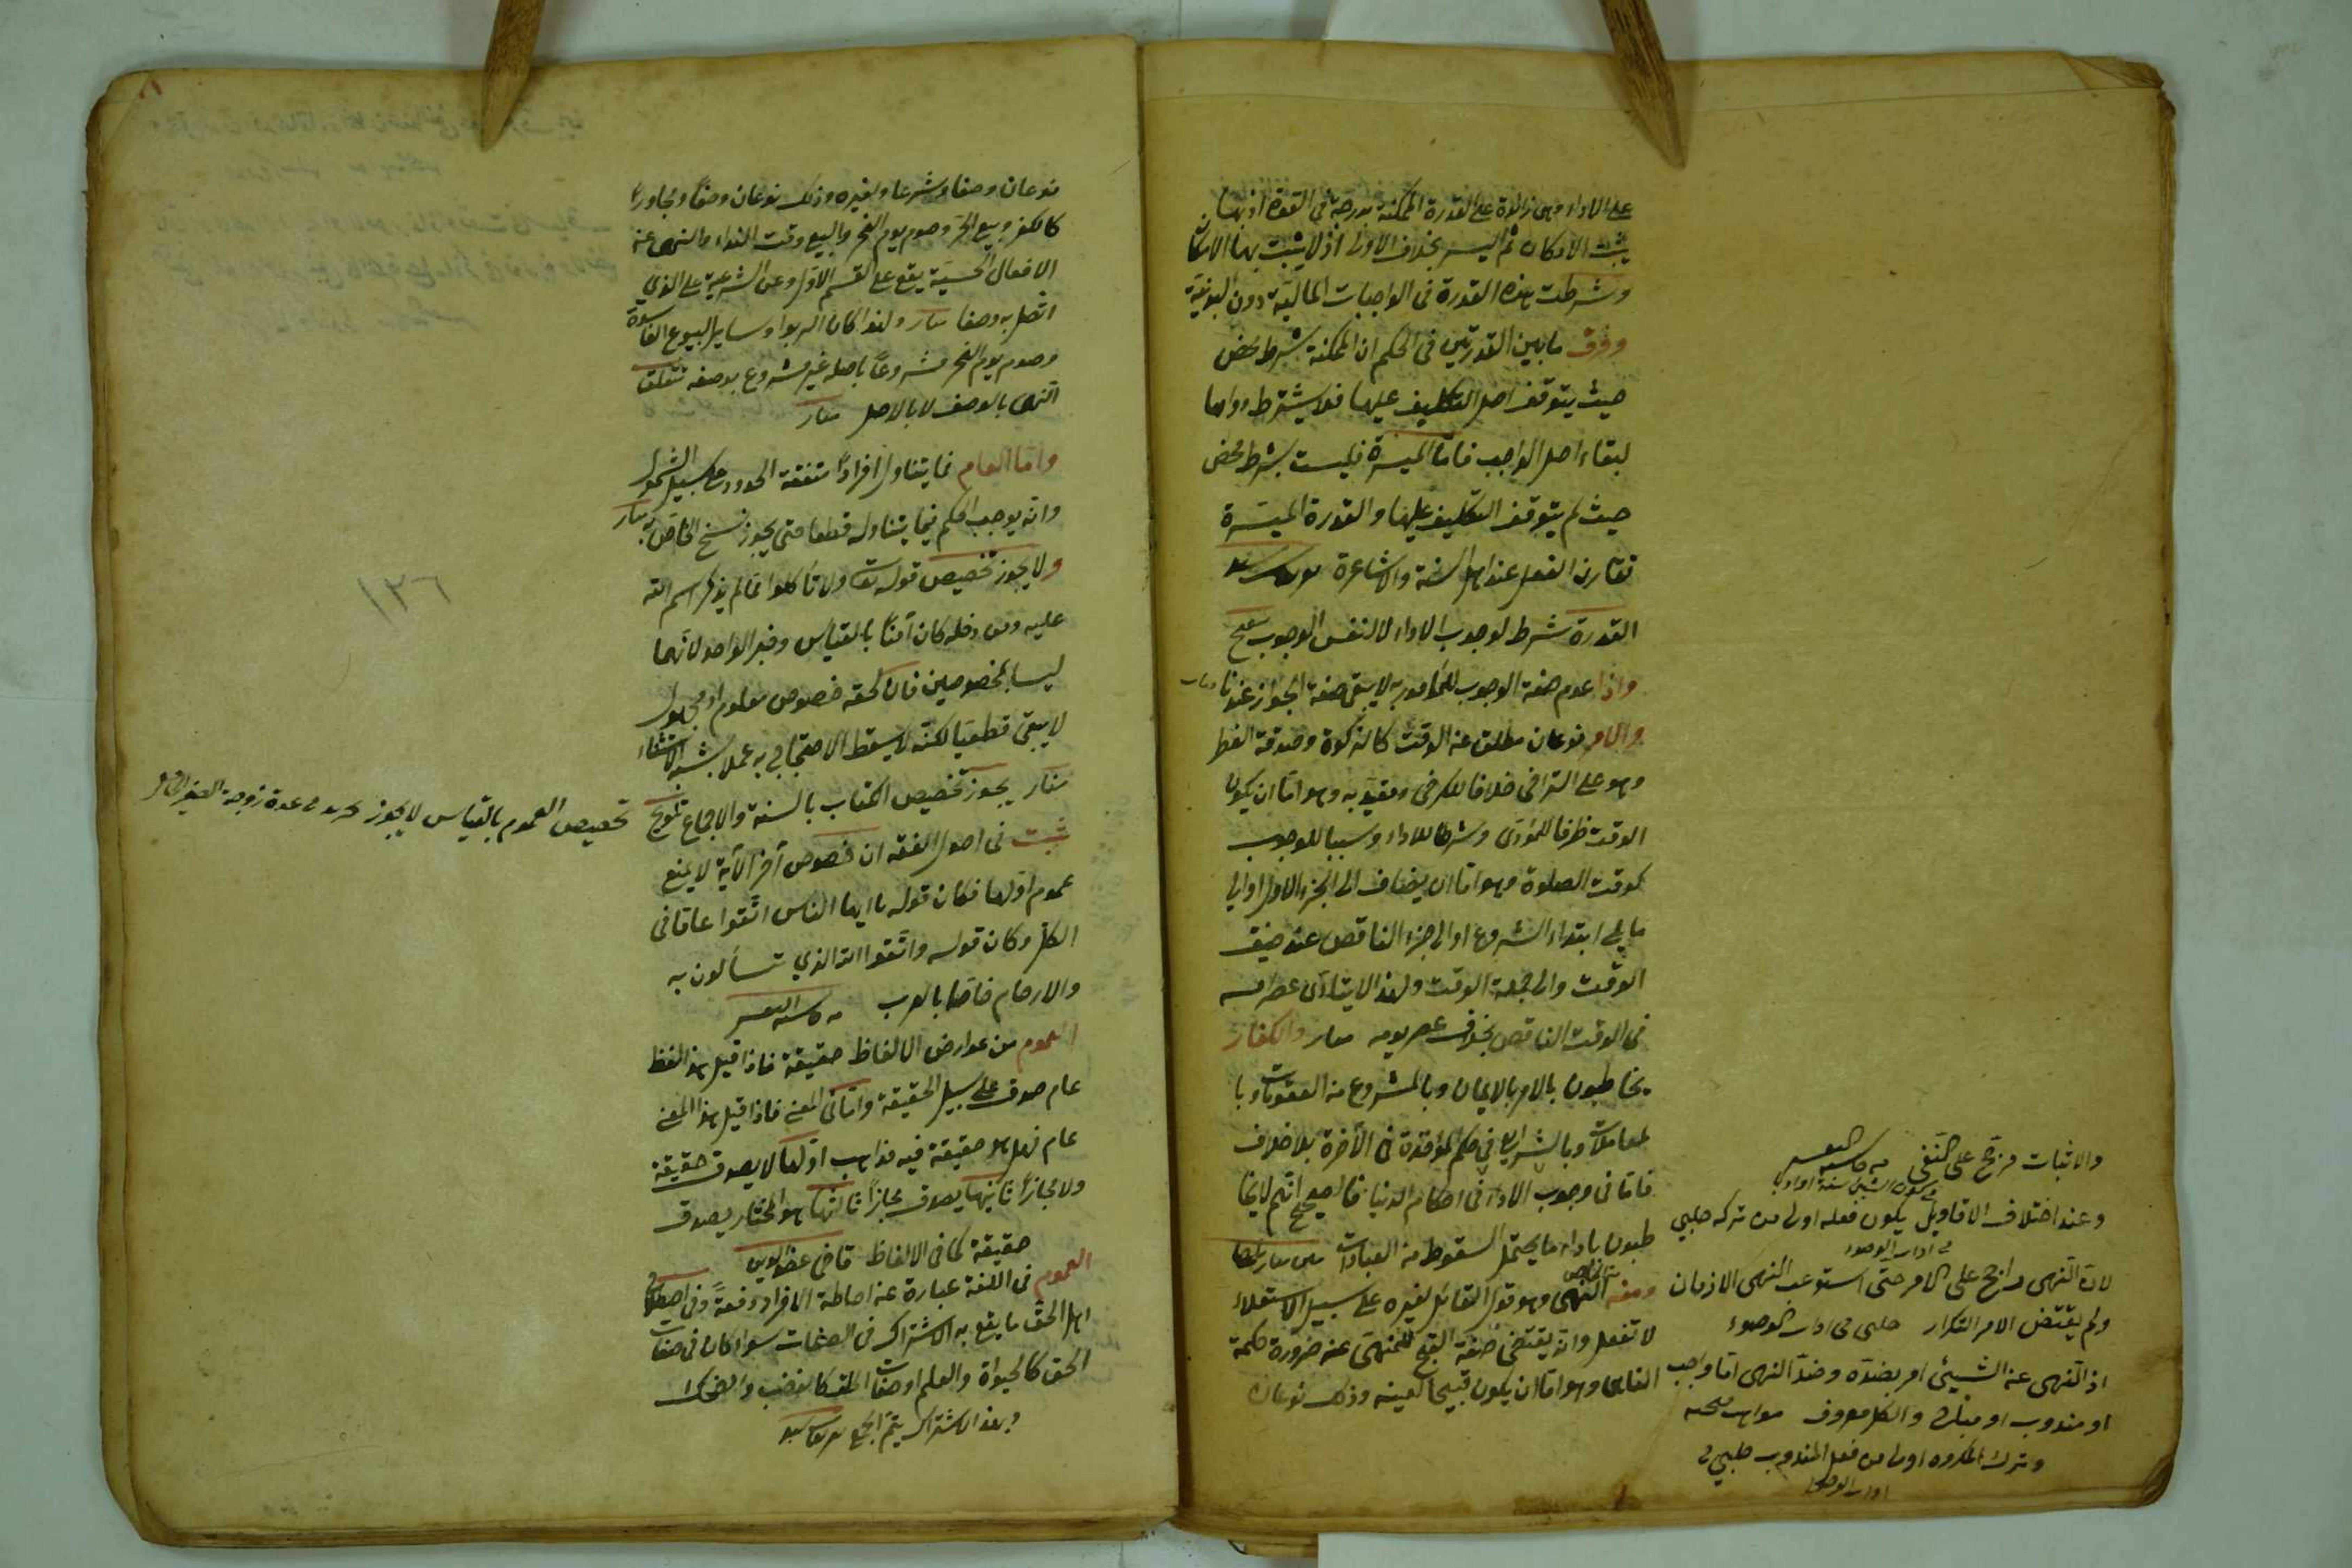 على الاداء وهى زائدة على القدرة الممكنة بدرجة فى القوة اذ بها
يثبت الامكان ثم اليسر بخلاف الاولى اذ لا يثبت بها الامكان
وشرطت هذه القدرة فى الواجبات المالية دون البدنية
وفرق ما بين القدرتين فى الحكم ان الممكنة شرط محض
حيث يتوقف اصل التكليف عليها فلا يشترط دوامها
لبقاء اصل الواجب فاما الميسرة فليست بشرط محض
حيث لم يتوقف التكليف عليها والقدرة الميسرة
تقارن الفعل عند اهل السنة والاشاعرة
القدرة شرط لوجوب الاداء لا لنفس الوجوب
واذا عدم صفة الوجوب للمأمور به لا يبقى صفة الجواز عندنا
والامر نوعان مطلق عن الوقت كالزكوة وصدقة الفطر
وهو على التراخى خلافا للكرخى ومقيد به وهو اما ان يكون
الوقت ظرفا للمؤدى وشرطا للاداء وسببا للوجوب
كوقت الصلوة وهو اما ان يضاف الى الجزء الاول او الى
ما يلى ابتداء الشروع او الى جزء الناقص عند ضيق
الوقت والى جملة الوقت ولهذا لا يتأدى عصر امسه
فى الوقت الناقص بخلاف عصر يومه منار والكفار
يخاطبون بالامر بالايمان وبالمشروع من العقوبات وبا
لمعاملات وبالشرايع فى حكم المؤاخذة فى الآخرة بلا خلاف
فاما فى وجوب الاداء فى احكام الدنيا فالصحيح انهم لا يخا
طبون باداء ما يحتمل السقوط من العبادات
ومنه النهى وهو قول القائل لغيره على سبيل الاستعلاء
لا تفعل وانه يقتضى صفة القبح للمنهى عنه ضرورة حكمة
الناهى وهو اما ان يكون قبيحا لعينه وذلك نوعان
والاثبات مرجح على النفى
وعند اختلاف الاقاويل يكون فعله اولى من تركه حلبي
فى اداب الوضوء
لان النهى راجح على الامر حتى استوعب النهى الازمان
ولم يقتض الامر التكرار حلبى فى اداب الوضوء
اذ النهى عن الشيئ امر بضده وضد النهى اما واجب
او مندوب او مباح والكل معروف
وترك المكروه اولى من فعل المندوب حلبي فى
اداب الوضوء
نوعان وصفا وشرعا ولغيره وذلك نوعان وصفا ومجاورا
كالكفر وبيع الحر وصوم يوم النحر والبيع وقت النداء والنهى عن
الافعال الحسية يقع على القسم الاول وعن الشرعية على الذي
اتصل به وصفا منار ولهذا كان الربوا وساير البيوع الفاسدة
وصوم يوم النحر مشروعا باصله غير مشروع بوصفه لتعلق
النهى بالوصف لا بالاصل منار
واما العام فما يتناول افرادا متفقة الحدود على سبيل الشمول
وانه يوجب الحكم فيما يتناوله قطعا حتى يجوز نسخ الخاص به منار
ولا يجوز تخصيص قوله تعالى ولا تأكلوا مما لم يذكر اسم الله
عليه ومن دخله كان آمنا بالقياس وخبر الواحد لانهما
ليسا بمخصوصين فان لحقه خصوص معلوم او مجهول
لا يبقى قطعيا لكنه لا يسقط الاحتجاج به عملا بشبه الاستثناء
منار يجوز تخصيص الكتاب بالسنة والاجماع تلويح
تخصيص العموم بالقياس لا يجوز
ثبت فى اصول الفقه ان خصوص آخر الآية لا يمنع
عموم اولها فكان قوله يا ايها الناس اتقوا عاما فى
الكل وكان قوله واتقوا الله الذي تسألون به
والارحام خاصا بالعرب
العموم من عوارض الالفاظ حقيقة فاذا قيل هذا لفظ
عام صدق على سبيل الحقيقة واما فى المعنى فاذا قيل هذا المعنى
عام فهل هو حقيقة فيه مذاهب اولها لا يصدق حقيقة
ولا مجازا ثانيها يصدق مجازا ثالثها هو المختار يصدق
حقيقة كما فى الالفاظ قاضى عضد الدين
العموم فى اللغة عبارة عن احاطة الافراد دفعة وفى اصطلاح
اهل الحق ما يقع به الاشتراك فى الصفات سواء كان فى صفات
الحق كالحيوة والعلم او صفات الخلق كالغضب والضحك
وبهذا الاشتراك يتم الجمع
١٣٦